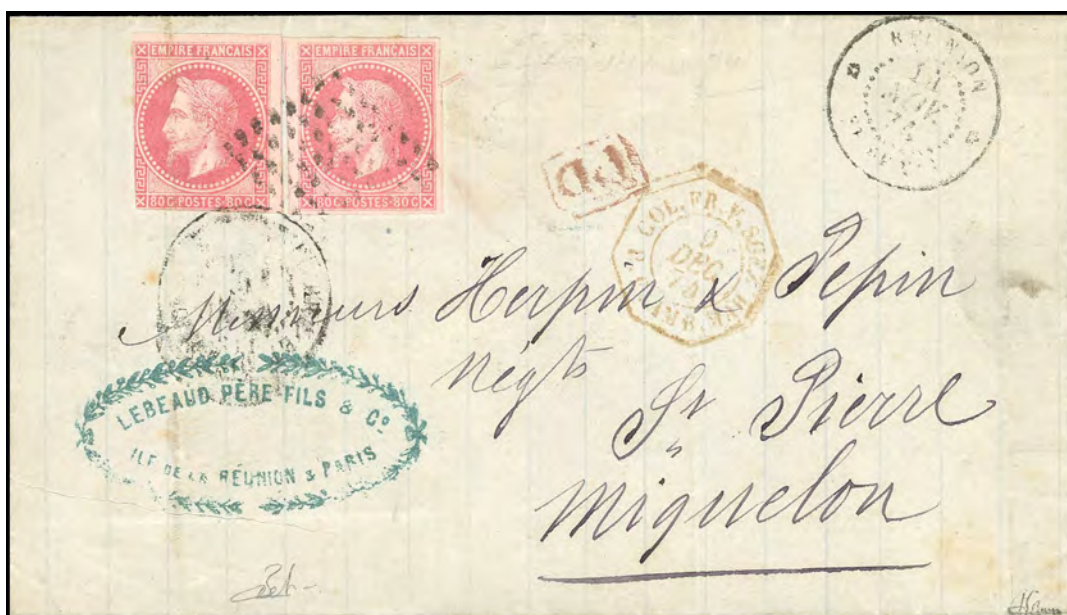 EMPIRE FRANÇAIS
80 C-POSTES-80C
EMPIRE FRANÇAIS
80 C-POSTES-80C
RÉUNION
11
NOV
PD
COL. FR. V. SUEZ
9
DEC
AMB.
Messieurs Herpin & Pepin
Négts
St Pierre
Miquelon
LEBEAUD PÈRE FILS & Co
ILE DE LA RÉUNION & PARIS